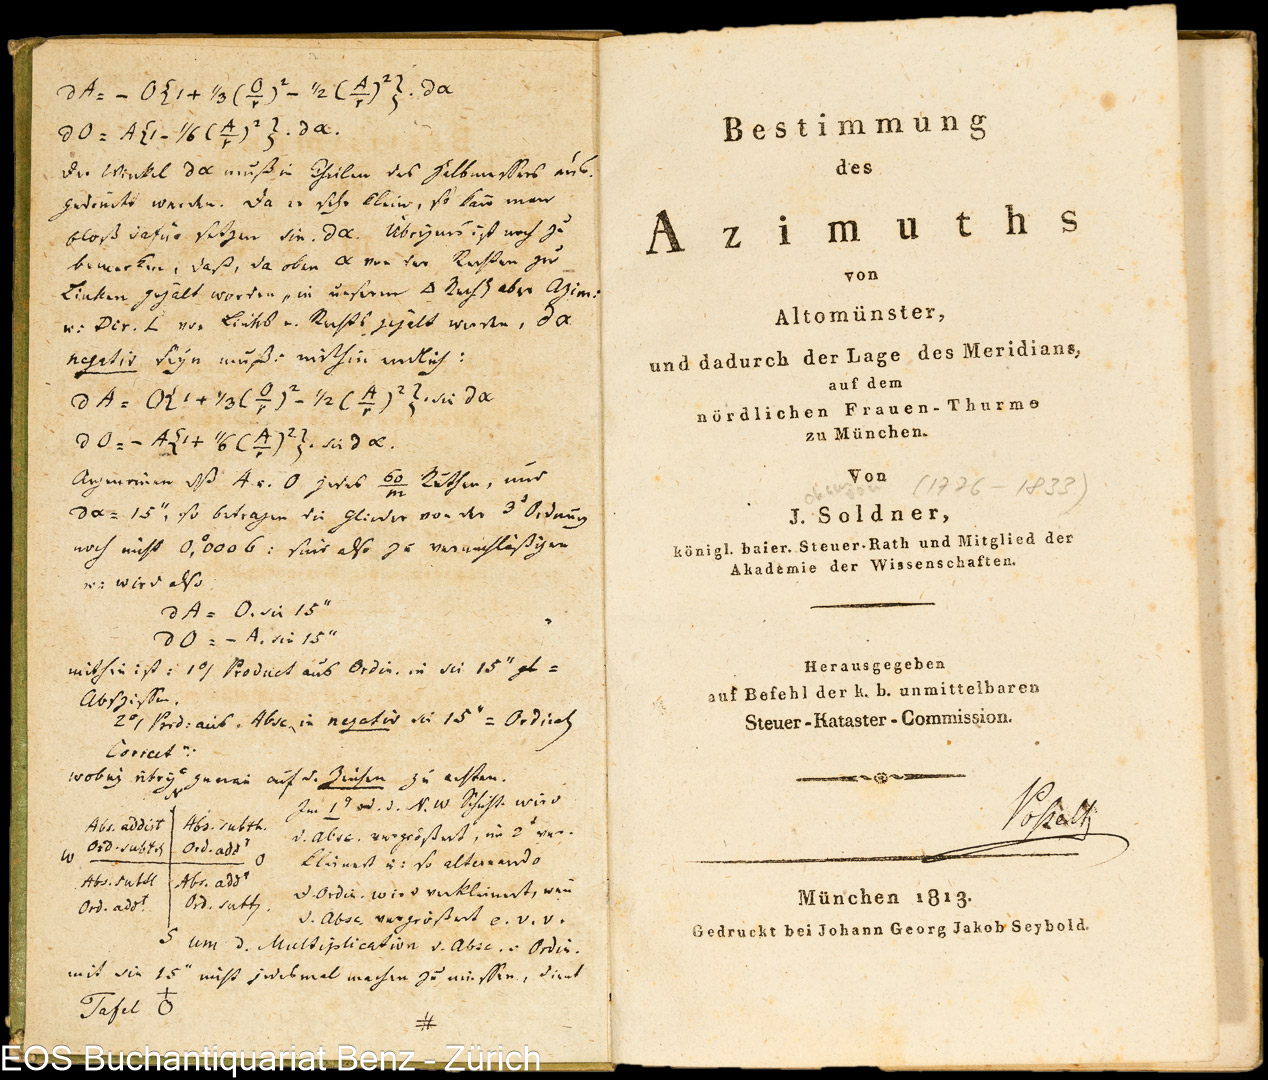 dA = - O{1 + 1/3 (O/r)² - 1/2 (A/r)²}. dα
dO = A{1 - 1/6 (A/r)²}. dα.
Der Winkel dα muß in Theilen des Halbmessers aus-
gedrückt werden. Da er sehr klein, so kann man
bloß dafür setzen sin. dα. Übrigens ist noch zu
bemerken, daß, da oben α von der Rechten zur
Linken gezält worden, in unserm Δ Netz aber Azim:
u: Dir. L von Links n. Rechts gezält werden, dα
negativ seyn muß: mithin endlich:
dA = O{1 + 1/3 (O/r)² - 1/2 (A/r)²}. sin dα
dO = - A{1 + 1/6 (A/r)²}. sin dα.
Angenommen daß A u. O jedes 60/m Ruthen, und
dα = 15", so betragen die Glieder von der 3ⁿ Ordnung
noch nicht 0,0006: sind also zu vernachläßigen
u: wird also
dA = O. sin 15"
dO = - A. sin 15"
mithin ist: 1°/ Product aus Ordin. in sin 15" =
Abszissen.
2°/ Prod: aus. Absc. in negativ sin 15" = Ordinat
Correct:
wobey übrigens genau auf d. Zeichen zu achten.
N
Abs. addirt Abs. subth.
Ord. subth Ord. addt
W O
Abs. subtt Abs. addt
Ord. addt Ord. subtt.
S
Im 1 od. d. N. W Schicht wird
d. Absc. vergrößert, im 2 ver-
kleinert u: so alternando
d. Ordin. wird verkleinert, wenn
d. Absc. vergrößert e. v. v.
um d. Multiplication d. Absc. : Ordin.
mit sin 15" nicht jedesmal machen zu müssen, dient
Tafel
#
Bestimmung
des
Azimuths
von
Altomünster,
und dadurch der Lage des Meridians,
auf dem
nördlichen Frauen-Thurme
zu München.
Von
(1776 - 1833)
J. Soldner,
königl. baier. Steuer-Rath und Mitglied der
Akademie der Wissenschaften.
Herausgegeben
auf Befehl der k. b. unmittelbaren
Steuer-Kataster-Commission.
München 1813.
Gedruckt bei Johann Georg Jakob Seybold.
EOS Buchantiquariat Benz - Zürich